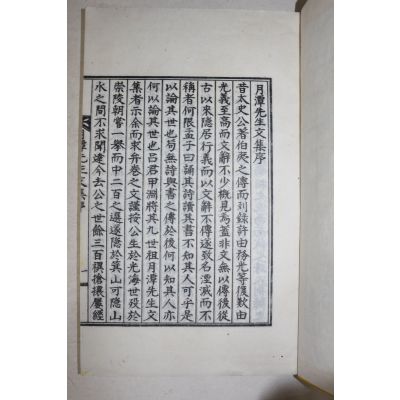 月潭先生文集序
昔太史公著伯夷之傳而列錄許由務光等後歎由
光義至高而文辭不少槪見焉蓋非文無以傳後從
古以來隱居行義而以文辭不傳遂致名湮滅而不
稱者何限孟子曰誦其詩讀其書不知其人可乎是
以論其世也苟無詩與書之傳於後何以知其人亦
何以論其世也呂君甲淵將其九世祖月潭先生文
集者示余而求弁卷之文謹按公生於光海世歿於
崇陵朝嘗一擧而中二百之選遂隱於箕山可隱山
水之間不求聞達今去公之世餘三百禩搶攘屢經
月潭先生文集序
一